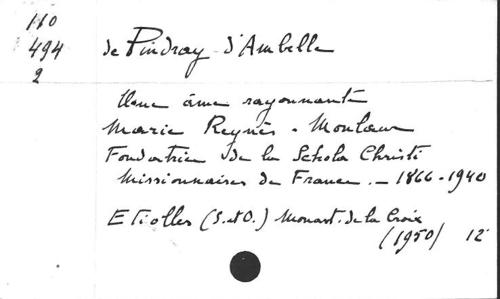 110
494
2
de Pindray d'Ambelle
Une âme rayonnante
Marie Reynès-Monlaur
Fondatrice de la Schola Christi
Missionnaires de France. - 1866-1940
Etiolles (S. et O.) Monast. de la Croix
(1950) 12°